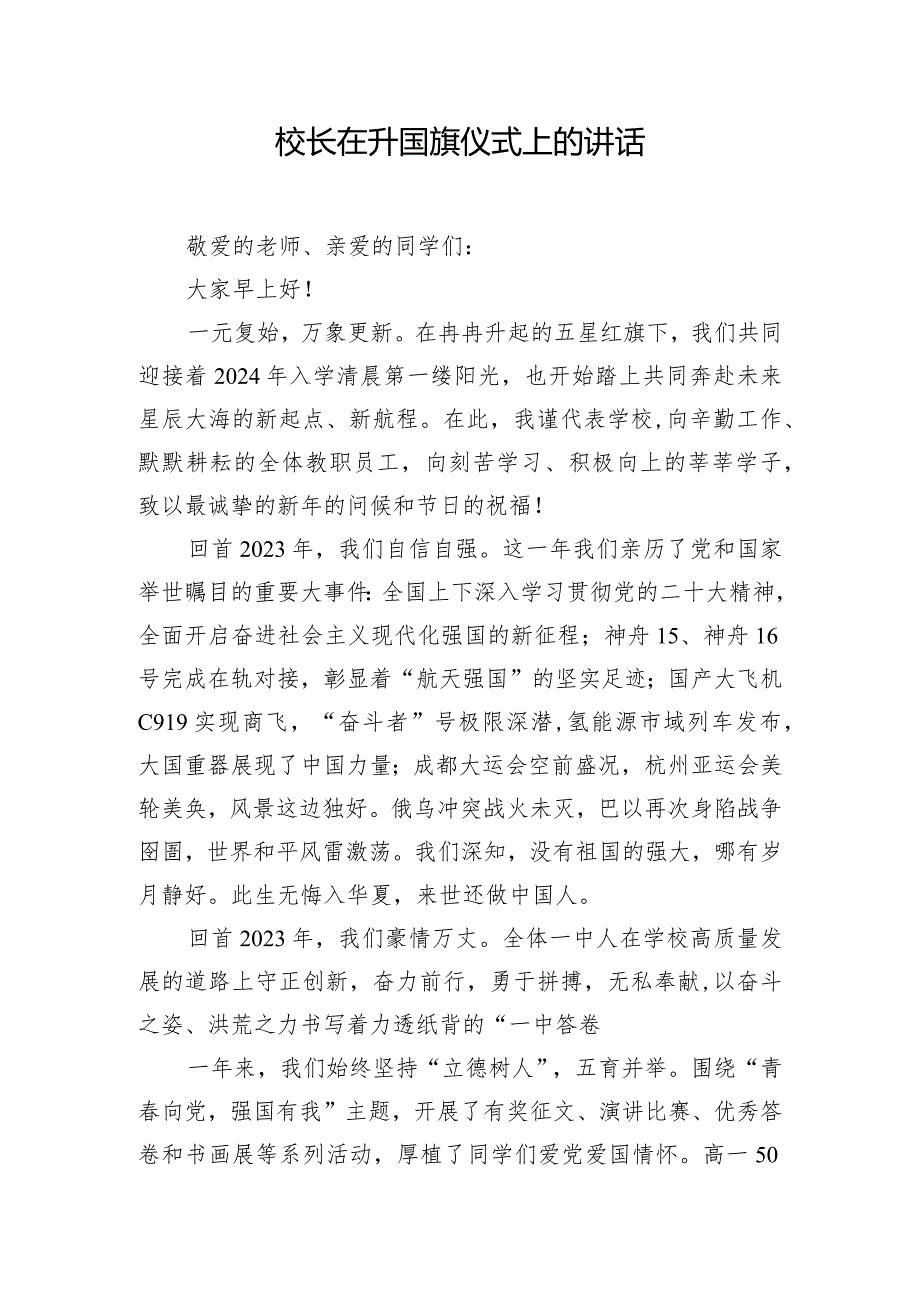 校长在升国旗仪式上的讲话
敬爱的老师、亲爱的同学们：
大家早上好！
一元复始，万象更新。在冉冉升起的五星红旗下，我们共同
迎接着2024年入学清晨第一缕阳光，也开始踏上共同奔赴未来
星辰大海的新起点、新航程。在此，我谨代表学校,向辛勤工作、
默默耕耘的全体教职员工，向刻苦学习、积极向上的莘莘学子，
致以最诚挚的新年的问候和节日的祝福！
回首2023年，我们自信自强。这一年我们亲历了党和国家
举世瞩目的重要大事件：全国上下深入学习贯彻党的二十大精神，
全面开启奋进社会主义现代化强国的新征程；神舟15、神舟16
号完成在轨对接，彰显着“航天强国”的坚实足迹；国产大飞机
C919实现商飞，“奋斗者”号极限深潜,氢能源市域列车发布，
大国重器展现了中国力量；成都大运会空前盛况，杭州亚运会美
轮美奂，风景这边独好。俄乌冲突战火未灭，巴以再次身陷战争
囹圄，世界和平风雷激荡。我们深知，没有祖国的强大，哪有岁
月静好。此生无悔入华夏，来世还做中国人。
回首2023年，我们豪情万丈。全体一中人在学校高质量发
展的道路上守正创新，奋力前行，勇于拼搏，无私奉献,以奋斗
之姿、洪荒之力书写着力透纸背的“一中答卷
一年来，我们始终坚持“立德树人”，五育并举。围绕“青
春向党，强国有我”主题，开展了有奖征文、演讲比赛、优秀答
卷和书画展等系列活动，厚植了同学们爱党爱国情怀。高一50